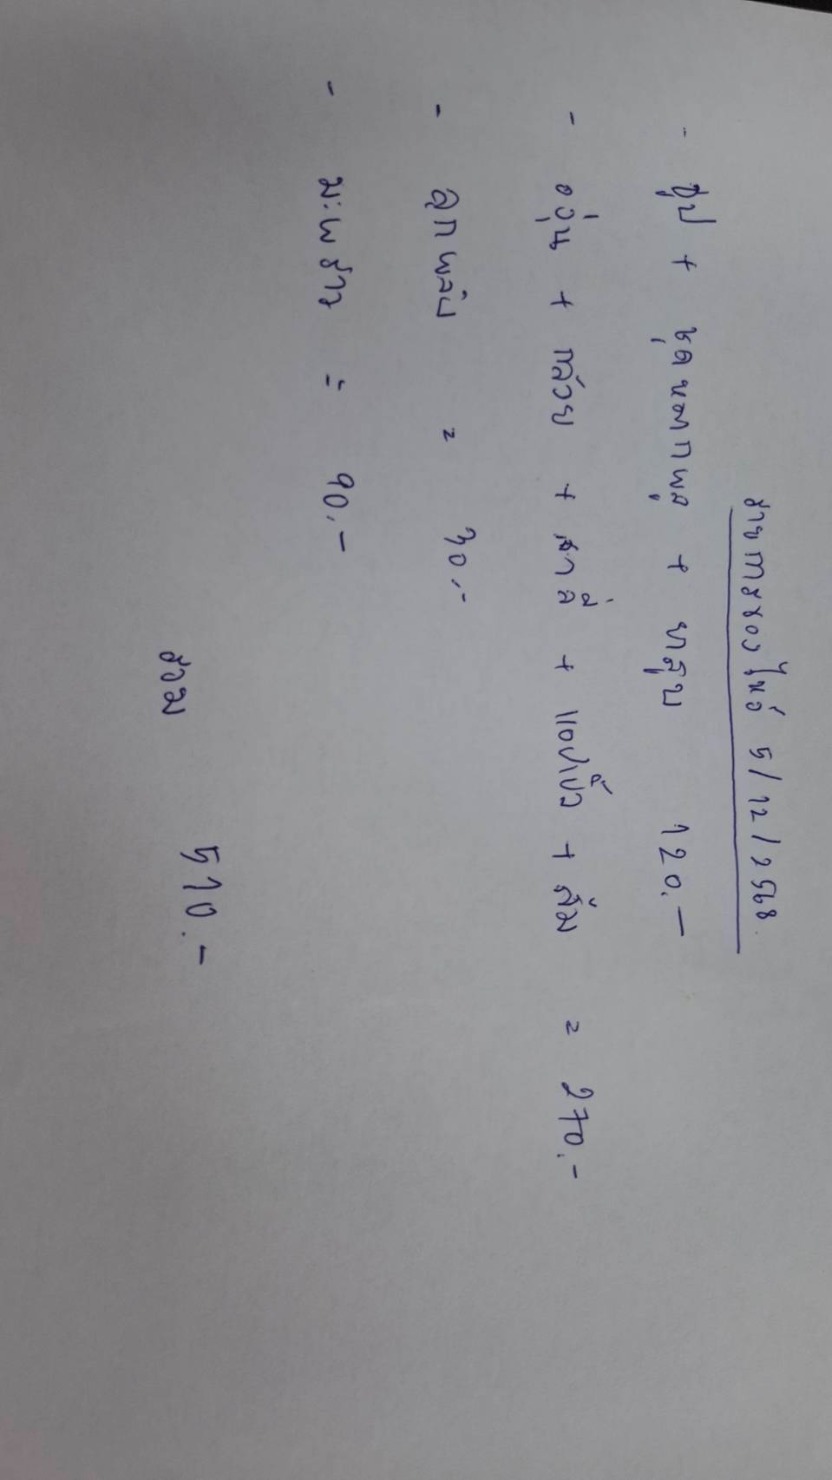 รายการของไหว้ 5/12/2568.
- ธูป + ชุดหมากพลู + ยาสูบ 120.-
- องุ่น + กล้วย + สาลี่ + แอปเปิ้ล + ส้ม = 270.-
- ลูกพลับ = 30.-
- มะพร้าว = 90.-
รวม 510.-